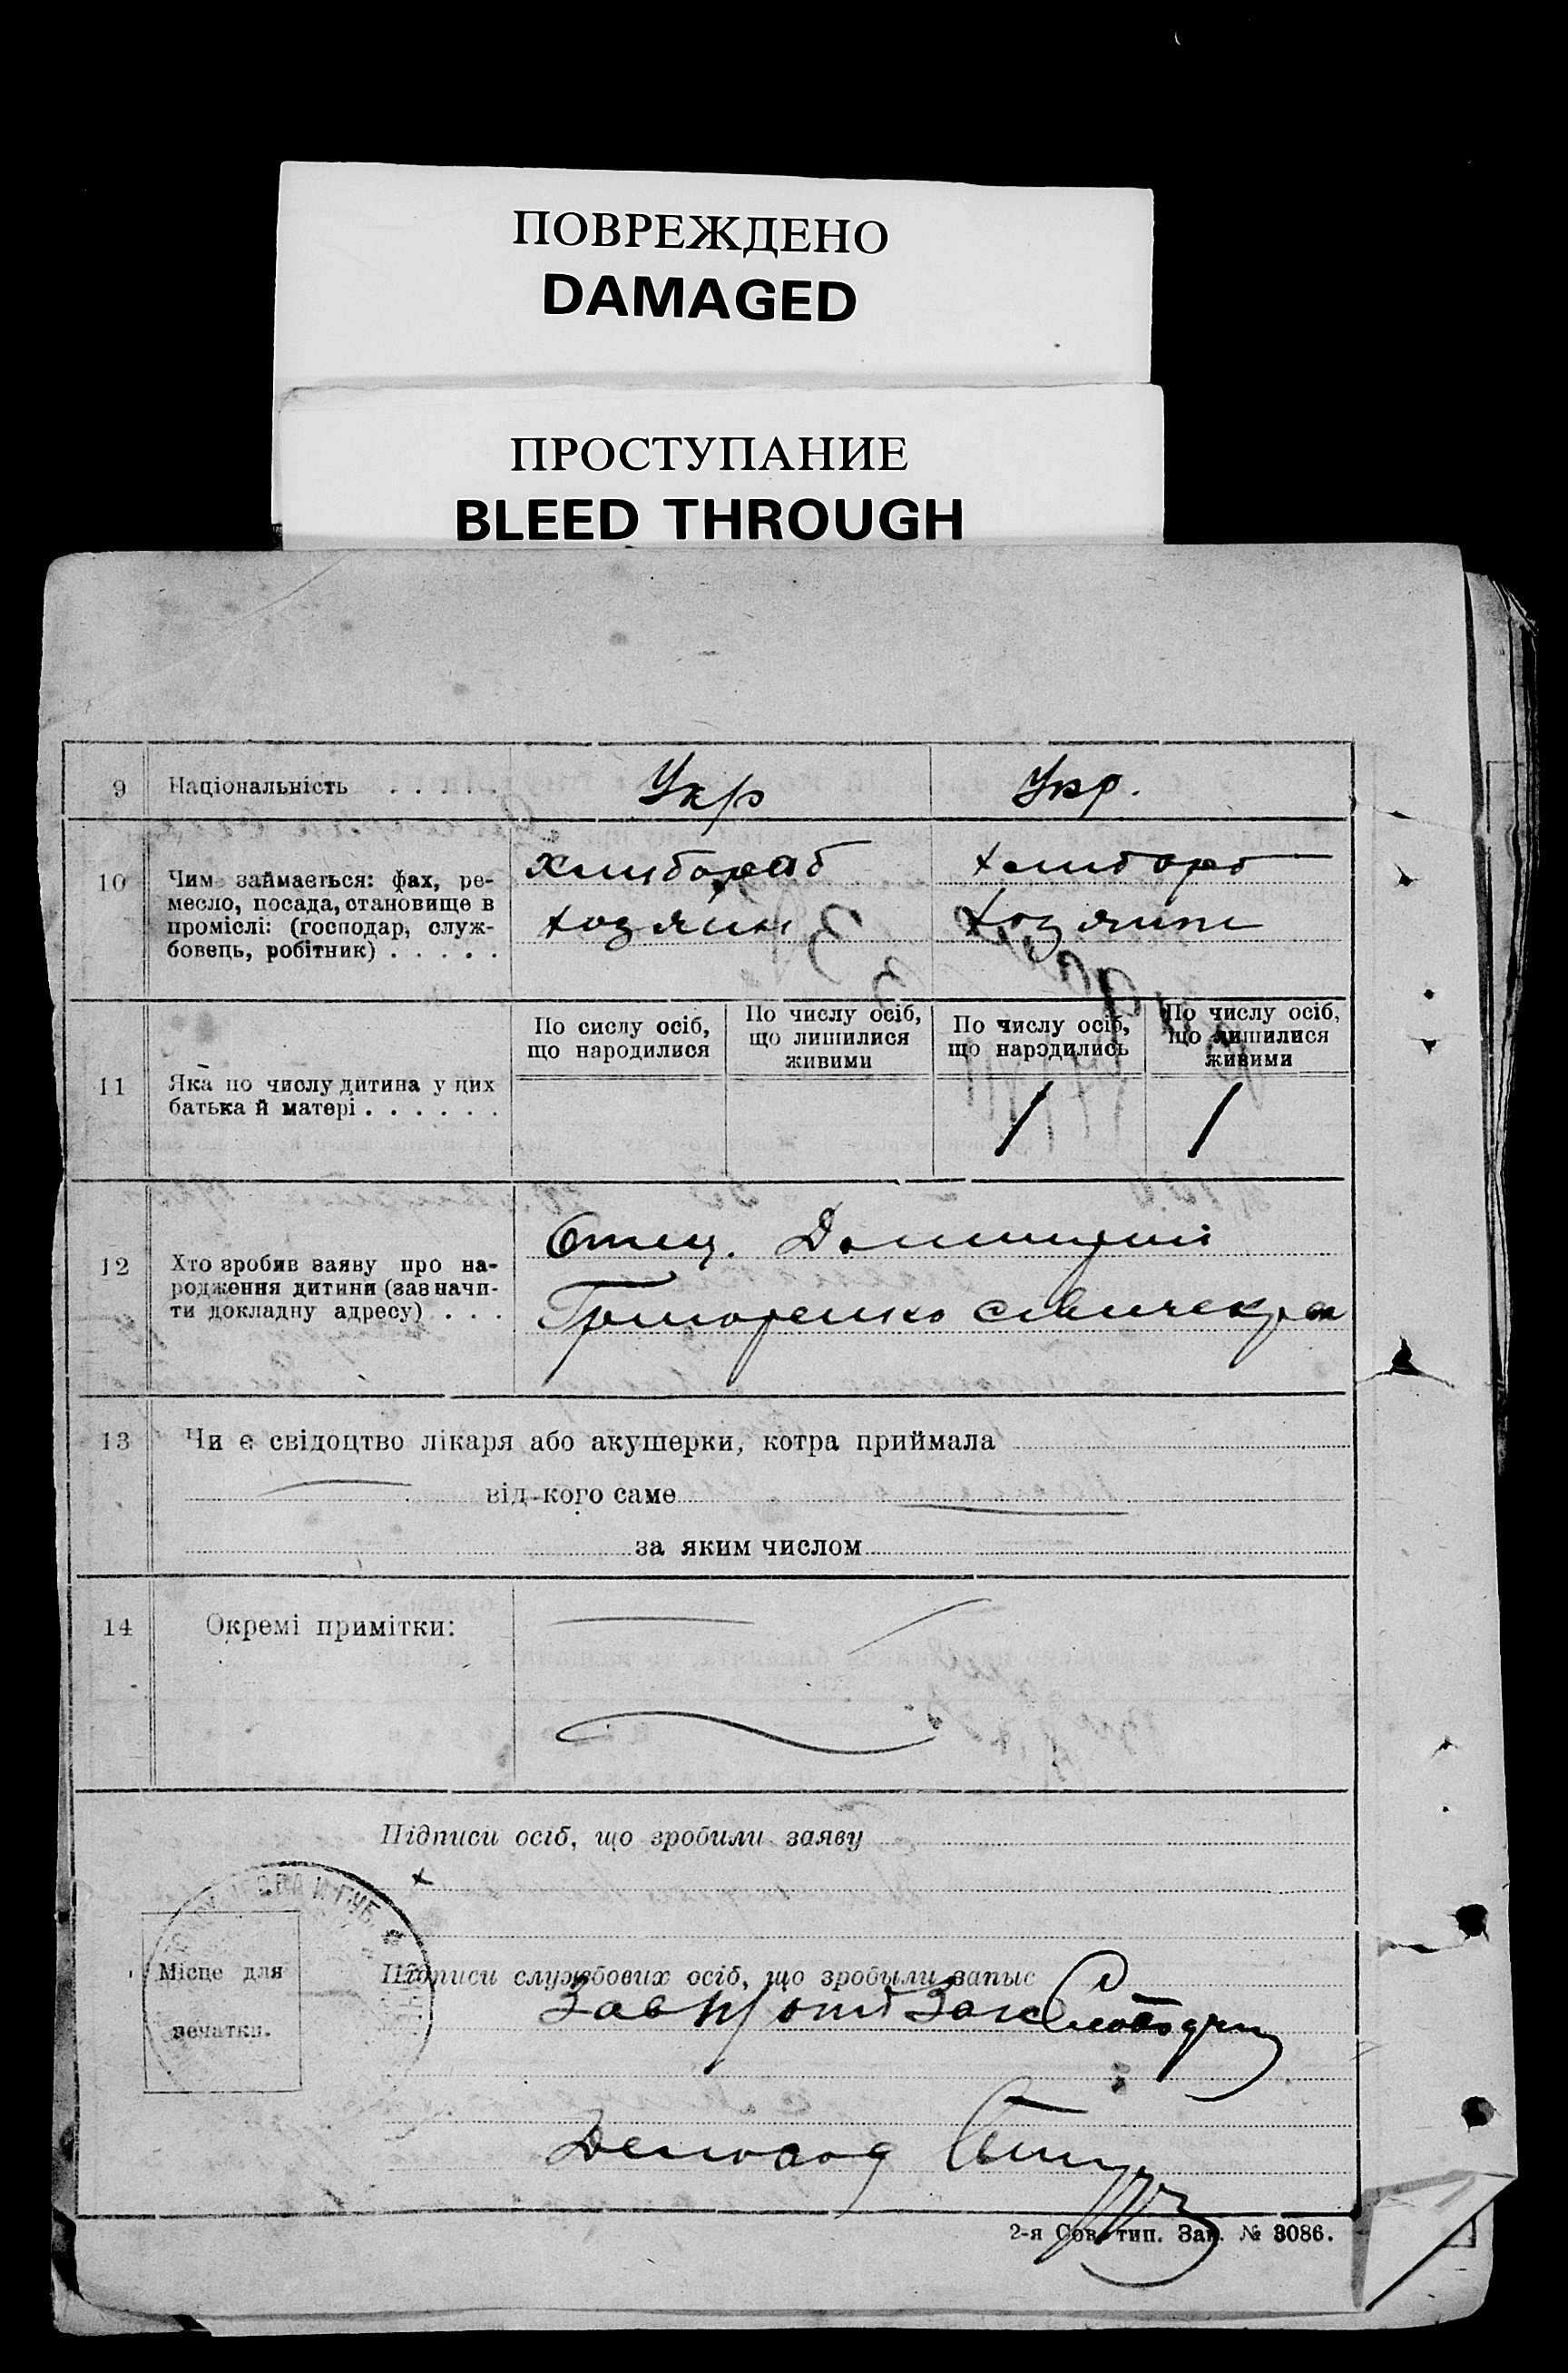 ПОВРЕЖДЕНО
DAMAGED
ПРОСТУПАНИЕ
BLEED THROUGH
9 Національність . . . . . Укр Укр.
10 Чим займається: фах, ре-
месло, посада, становище в
проміслі: (господар, служ-
бовець, робітник) . . . . .
Хлибораб
хозяин
11 Яка по числу дитина у цих
батька й матері . . . . . .
По сислу осіб,
що народилися
По числу осіб,
що лишилися
живими
По числу осіб,
що народились
По числу осіб,
що лишилися
живими
1 1
12 Хто зробив заяву про на-
родження дитини (зазначи-
ти докладну адресу) . . .
Отец.
13 Чи є свідоцтво лікаря або акушерки, котра приймала
від кого саме
за яким числом
14 Окремі примітки:
Підписи осіб, що зробили заяву
х
Місце для
печатки.
Підписи службових осіб, що зробыли запыс
Зав
Деловод
2-я Сов. тип. Зак. № 3086.